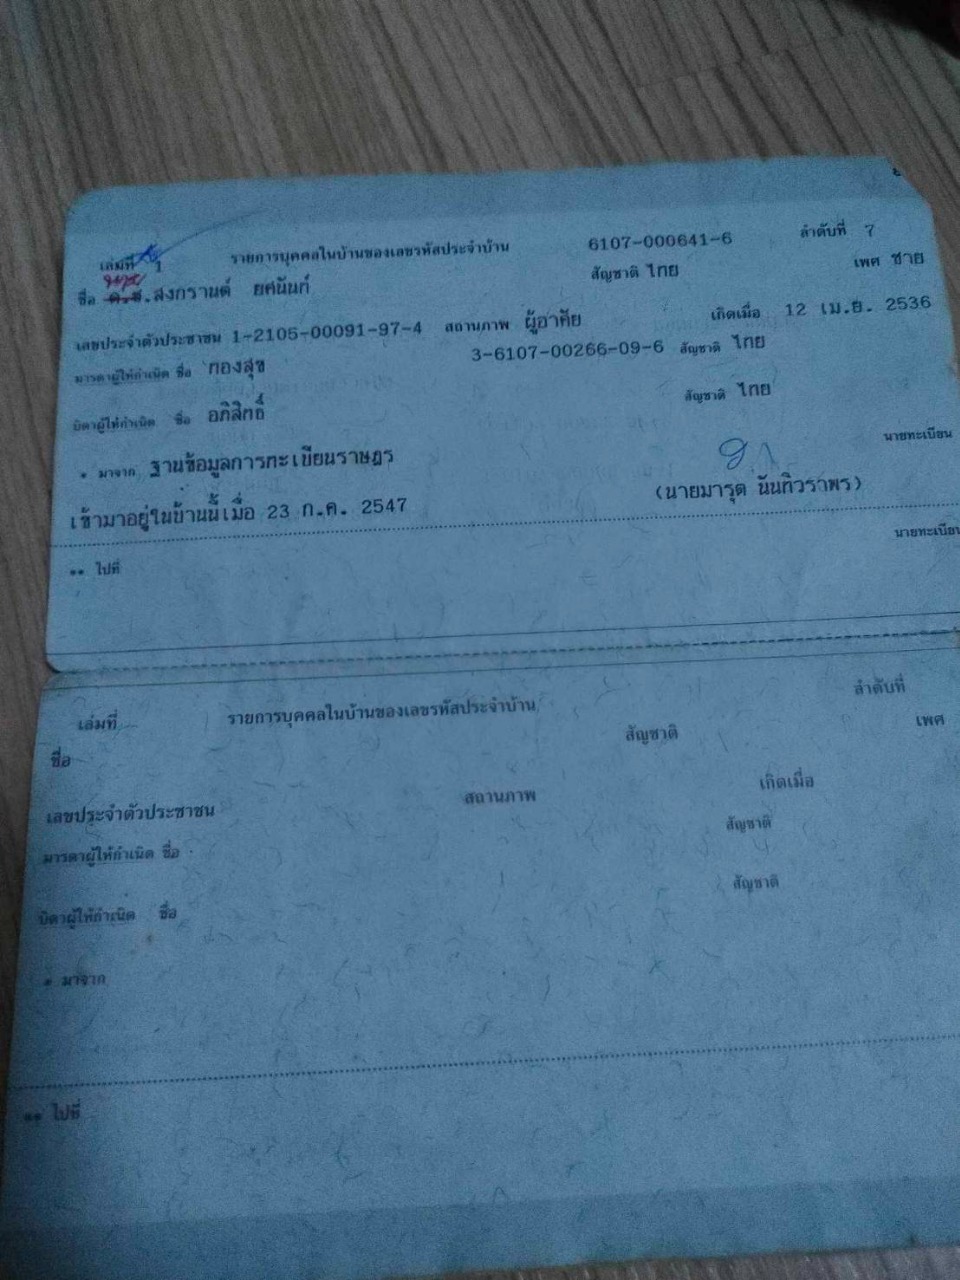 เล่มที่ 1 รายการบุคคลในบ้านของเลขรหัสประจำบ้าน 6107-000641-6 ลำดับที่ 7
นาย
ชื่อ ด.ช.สงกรานต์ ยศนันท์ สัญชาติ ไทย เพศ ชาย
เลขประจำตัวประชาชน 1-2105-00091-97-4 สถานภาพ ผู้อาศัย เกิดเมื่อ 12 เม.ย. 2536
มารดาผู้ให้กำเนิด ชื่อ ทองสุข 3-6107-00266-09-6 สัญชาติ ไทย
บิดาผู้ให้กำเนิด ชื่อ อภิสิทธิ์ สัญชาติ ไทย
* มาจาก ฐานข้อมูลการทะเบียนราษฎร นายทะเบียน
เข้ามาอยู่ในบ้านนี้เมื่อ 23 ก.ค. 2547 (นายมารุต นันทิวราพร)
** ไปที่ นายทะเบียน
เล่มที่ รายการบุคคลในบ้านของเลขรหัสประจำบ้าน ลำดับที่
ชื่อ สัญชาติ เพศ
เลขประจำตัวประชาชน สถานภาพ เกิดเมื่อ
มารดาผู้ให้กำเนิด ชื่อ สัญชาติ
บิดาผู้ให้กำเนิด ชื่อ สัญชาติ
* มาจาก
** ไปที่